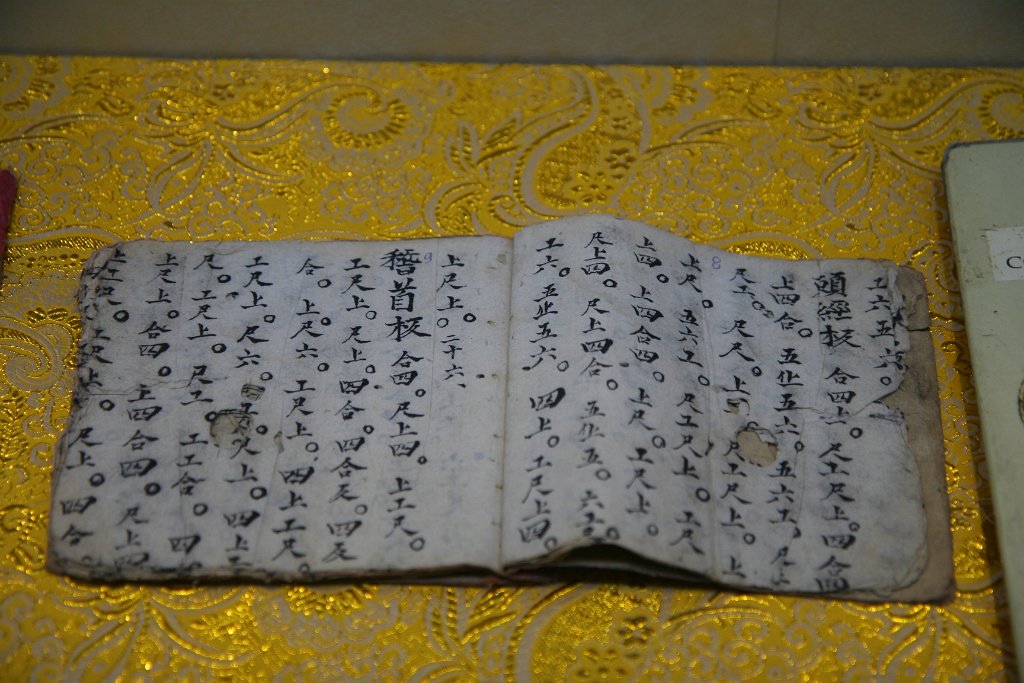 工六五六。
頭經板 合四上。尺工尺上。四合四
上四合。五止五六。五六工。尺上
尺工。尺尺。上工尺工尺上。上
上尺。五六工。尺工尺上。工尺
上四。上四合四。上尺。工尺上。
尺上四。尺上四合。五止五。六工。
工六。五止五六。四上。工尺上四。
上尺上。二十六
稽首板 合四。尺上四。上工尺。
工尺上。尺上。四合。四合尺。四尺
合。上尺六。工尺上。四上工尺。
工尺上。尺六。尺上。四上
尺。工尺上。尺工。工工合。四
上尺上。合四。上四合四。尺上四
上工尺。工尺上。尺上。四合。
8
9